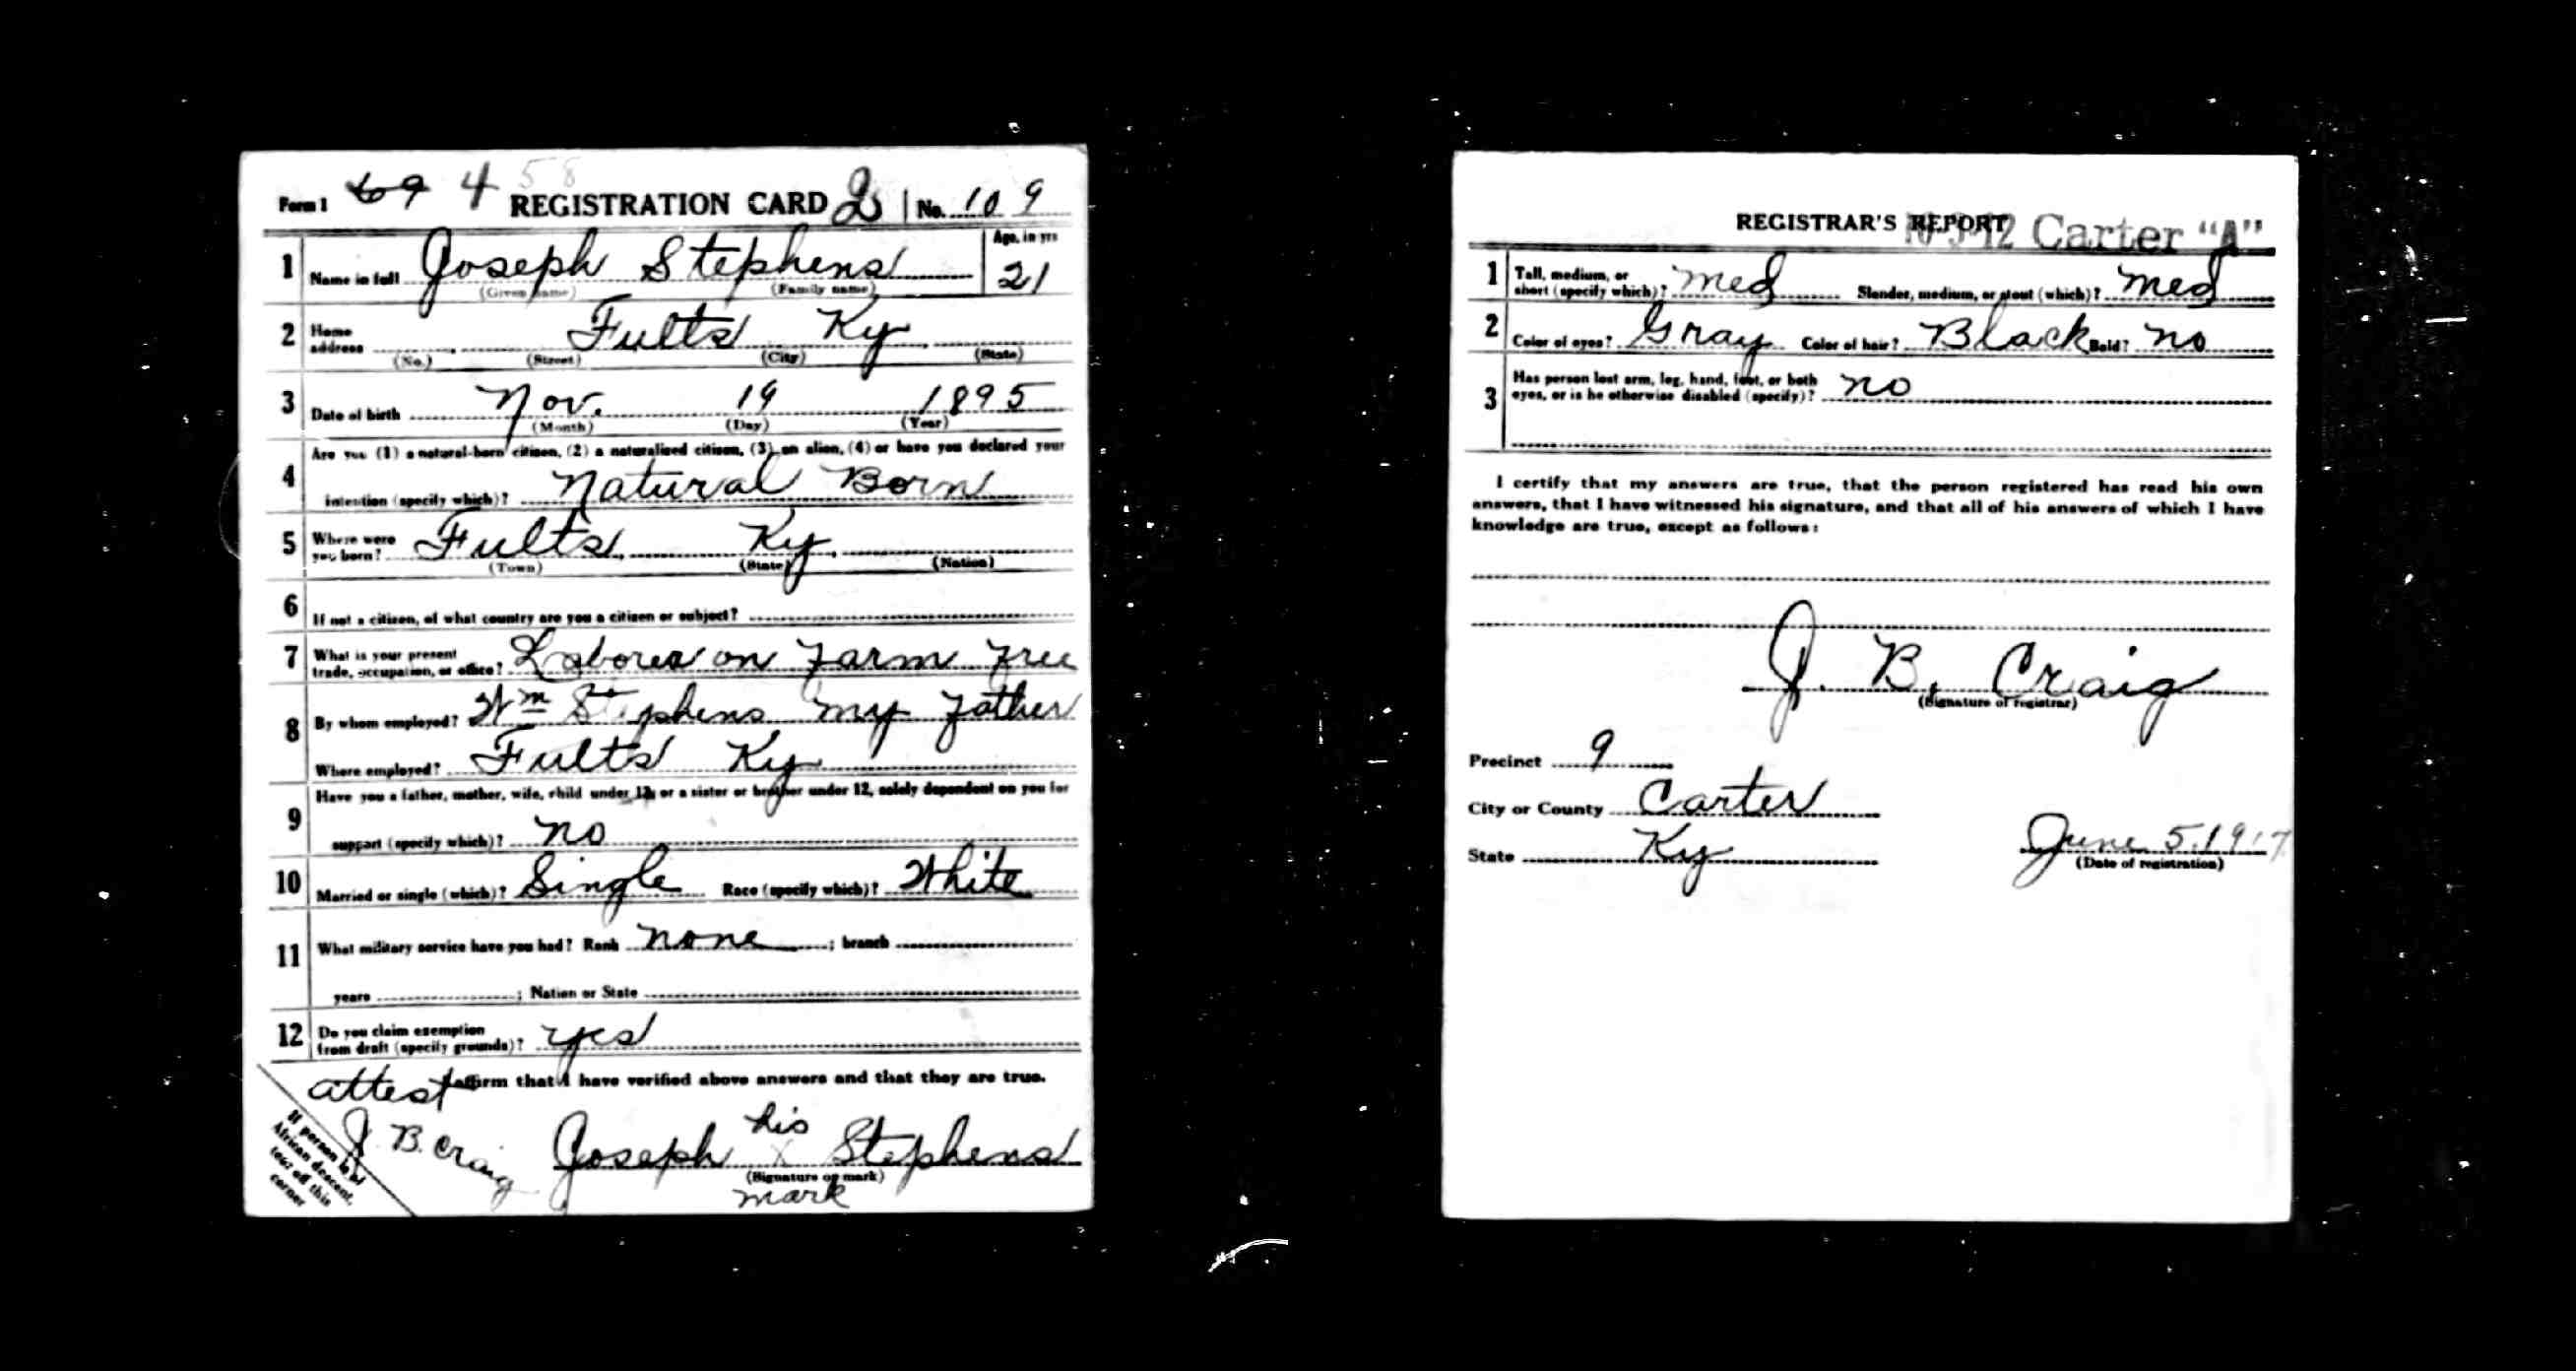 Form 1 69 4 58 REGISTRATION CARD 2 No. 109
1 Name in full Joseph Stephens Age, in yrs
(Given name) (Family name) 21
2 Home address Fults Ky
(No.) (Street) (City) (State)
3 Date of birth Nov. 19 1895
(Month) (Day) (Year)
Are you (1) a natural-born citizen, (2) a naturalized citizen, (3) an alien, (4) or have you declared your
4 intention (specify which)? Natural Born
5 Where were you born? Fults, Ky.
(Town) (State) (Nation)
6 If not a citizen, of what country are you a citizen or subject?
7 What is your present
trade, occupation, or office? Laborer on Farm Free
8 By whom employed? Wm Stephens my Father
Where employed? Fults Ky
Have you a father, mother, wife, child under 12, or a sister or brother under 12, solely dependent on you for
9 support (specify which)? no
10 Married or single (which)? Single Race (specify which)? White
11 What military service have you had? Rank none ; branch
years ; Nation or State
12 Do you claim exemption
from draft (specify grounds)? yes
attest I affirm that I have verified above answers and that they are true.
If person is of
African descent,
tear off this
corner
J. B. Craig
his
Joseph X Stephens
(Signature or mark)
mark
REGISTRAR'S REPORT Carter "A"
1 Tall, medium, or
short (specify which)? med Slender, medium, or stout (which)? med
2 Color of eyes? Gray Color of hair? Black Bald? no
3 Has person lost arm, leg, hand, foot, or both
eyes, or is he otherwise disabled (specify)? no
I certify that my answers are true, that the person registered has read his own
answers, that I have witnessed his signature, and that all of his answers of which I have
knowledge are true, except as follows:
J. B. Craig
(Signature of registrar)
Precinct 9
City or County Carter
State Ky
June 5. 1917
(Date of registration)